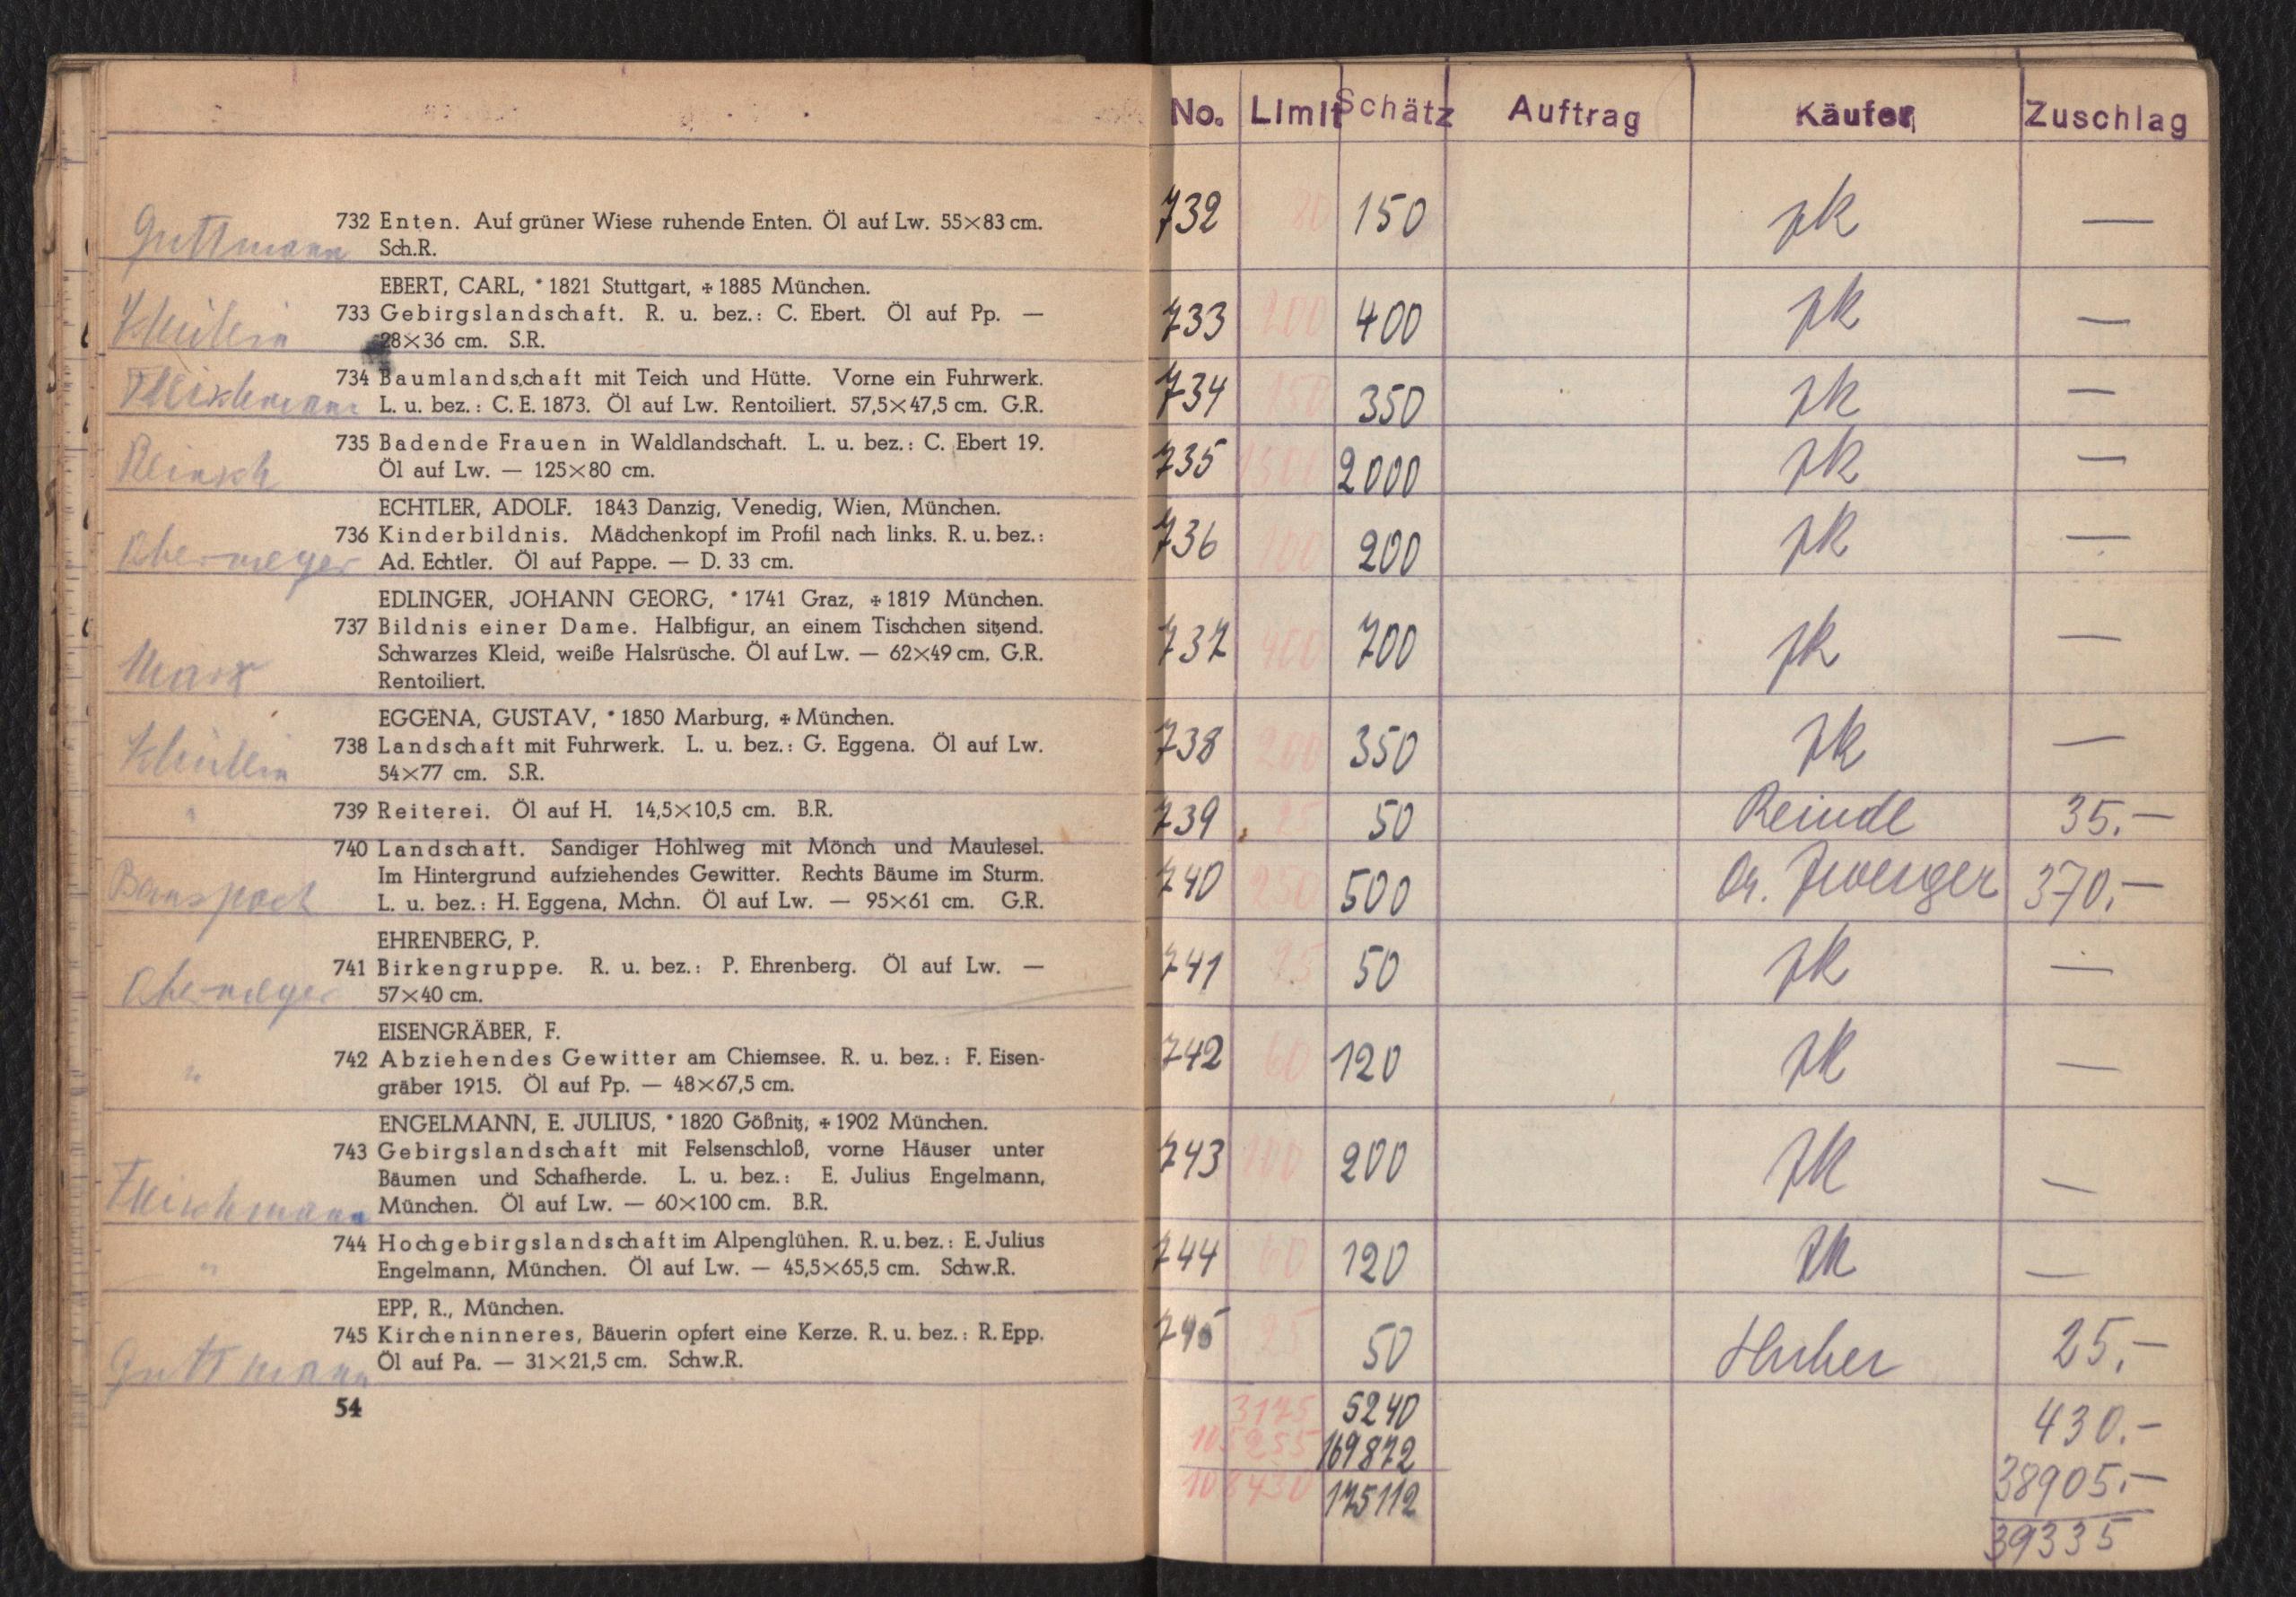 Guttmann
732 Enten. Auf grüner Wiese ruhende Enten. Öl auf Lw. 55×83 cm.
Sch.R.
EBERT, CARL, * 1821 Stuttgart, ✠ 1885 München.
733 Gebirgslandschaft. R. u. bez.: C. Ebert. Öl auf Pp. —
28×36 cm. S.R.
Fleischmann
734 Baumlandschaft mit Teich und Hütte. Vorne ein Fuhrwerk.
L. u. bez.: C. E. 1873. Öl auf Lw. Rentoiliert. 57,5×47,5 cm. G.R.
Reinsch
735 Badende Frauen in Waldlandschaft. L. u. bez.: C. Ebert 19.
Öl auf Lw. — 125×80 cm.
ECHTLER, ADOLF. 1843 Danzig, Venedig, Wien, München.
Obermeyer
736 Kinderbildnis. Mädchenkopf im Profil nach links. R. u. bez.:
Ad. Echtler. Öl auf Pappe. — D. 33 cm.
EDLINGER, JOHANN GEORG, * 1741 Graz, ✠ 1819 München.
737 Bildnis einer Dame. Halbfigur, an einem Tischchen sitzend.
Schwarzes Kleid, weiße Halsrüsche. Öl auf Lw. — 62×49 cm. G.R.
Marx
Rentoiliert.
EGGENA, GUSTAV, * 1850 Marburg, ✠ München.
738 Landschaft mit Fuhrwerk. L. u. bez.: G. Eggena. Öl auf Lw.
54×77 cm. S.R.
"
739 Reiterei. Öl auf H. 14,5×10,5 cm. B.R.
740 Landschaft. Sandiger Hohlweg mit Mönch und Maulesel.
Im Hintergrund aufziehendes Gewitter. Rechts Bäume im Sturm.
L. u. bez.: H. Eggena, Mchn. Öl auf Lw. — 95×61 cm. G.R.
EHRENBERG, P.
Obermeyer
741 Birkengruppe. R. u. bez.: P. Ehrenberg. Öl auf Lw. —
57×40 cm.
EISENGRÄBER, F.
"
742 Abziehendes Gewitter am Chiemsee. R. u. bez.: F. Eisen-
gräber 1915. Öl auf Pp. — 48×67,5 cm.
ENGELMANN, E. JULIUS, * 1820 Gößnitz, ✠ 1902 München.
743 Gebirgslandschaft mit Felsenschloß, vorne Häuser unter
Bäumen und Schafherde. L. u. bez.: E. Julius Engelmann,
Fleischmann
München. Öl auf Lw. — 60×100 cm. B.R.
744 Hochgebirgslandschaft im Alpenglühen. R. u. bez.: E. Julius
"
Engelmann, München. Öl auf Lw. — 45,5×65,5 cm. Schw.R.
EPP, R., München.
745 Kircheninneres, Bäuerin opfert eine Kerze. R. u. bez.: R. Epp.
Guttmann
Öl auf Pa. — 31×21,5 cm. Schw.R.
54
No. Limit Schätz Auftrag Käufer Zuschlag
732 150 zk —
733 200 400 zk —
734 150 350 zk —
735 1500 2000 zk —
736 100 200 zk —
737 400 700 zk —
738 200 350 zk —
739 25 50 Reindl 35.—
740 250 500 Dr. Zwenger 370.—
741 25 50 zk —
742 60 120 zk —
743 100 200 zk —
744 60 120 zk —
745 25 50 Huber 25.—
3175 5240 430.—
105255 169872 38905.—
108430 175112 39335